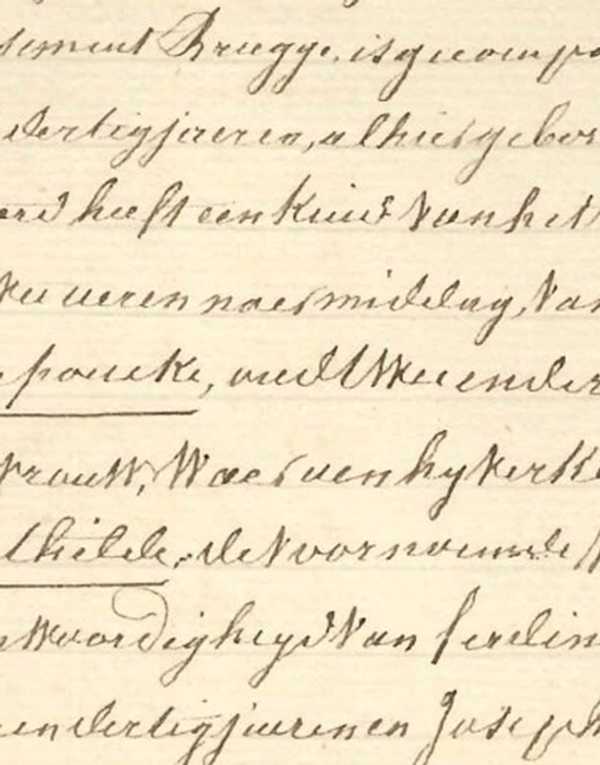 sement Brugge, is gecompa
dertig jaeren, alhier gebor
eerd heeft een kind van het
wee ueren naer middag, van
poucke, oud twee en der
vrouw, waer van hy verk
thilde, de voornoemde
nwoordigheyd van ferdin
en dertig jaeren en Joseph